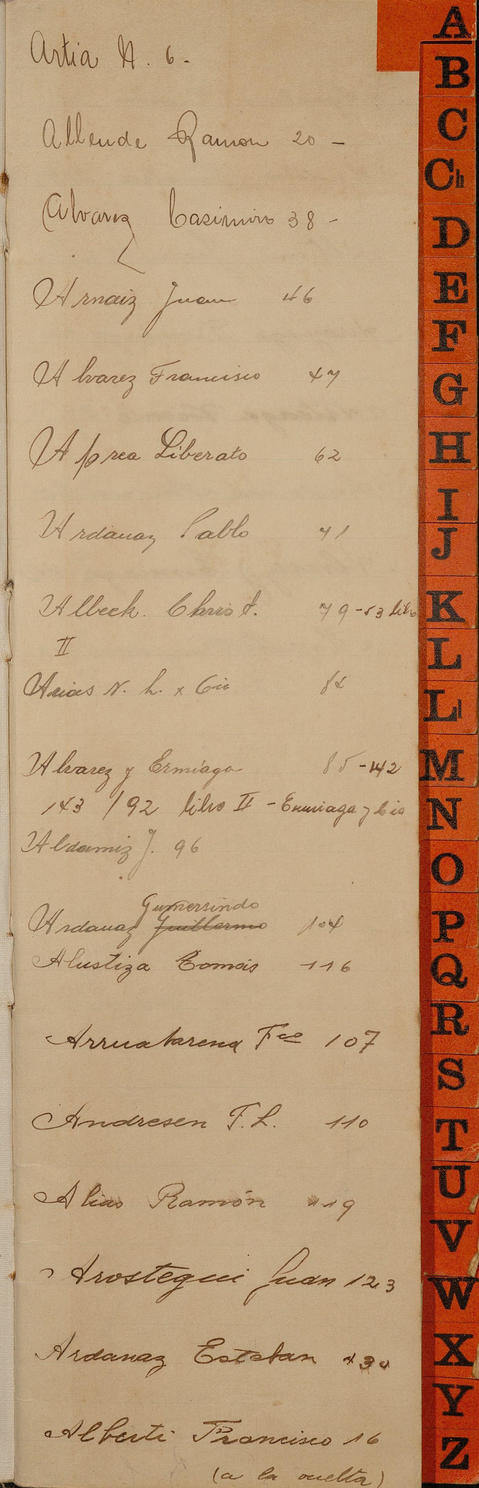 Artia N. 6-
Allende Ramon 20-
Alvarez Casimiro 38-
Arnaiz Juan 46
Alvarez Francisco 47
Aprea Liberato 62
Ardanaz Pablo 71
Albeck. Chris I. 79-53 libro
II
Arias N. L. y Cia 84
Alvarez y Ermiaga 85-142
143 /92 libro II - Ermiaga y Cia
Aldamiz J. 96
Gumersindo
Ardanaz Guillermo 104
Alustiza Tomás 116
Arruabarena Fco 107
Andresen F. L. 110
Alias Ramón 119
Arostegui Juan 123
Ardanaz Esteban
Alberti Francisco 16
(a la vuelta)
A
B
C
Ch
D
E
F
G
H
I
J
K
L
Ll
M
N
O
P
Q
R
S
T
U
V
W
X
Y
Z